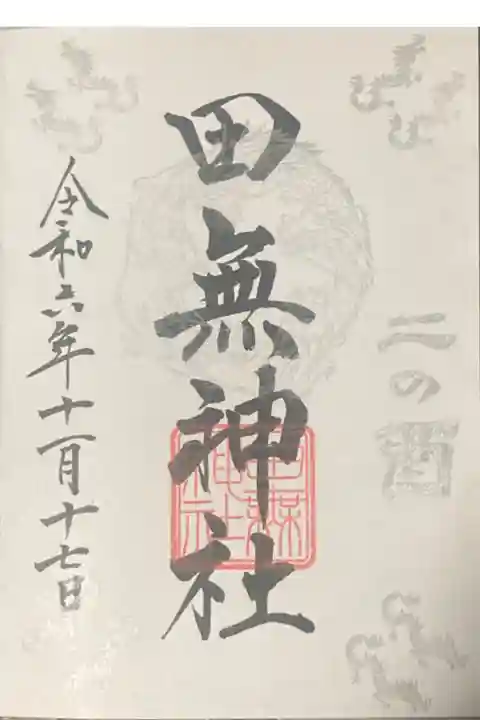 二の酉
田無神社
令和六年十一月十七日